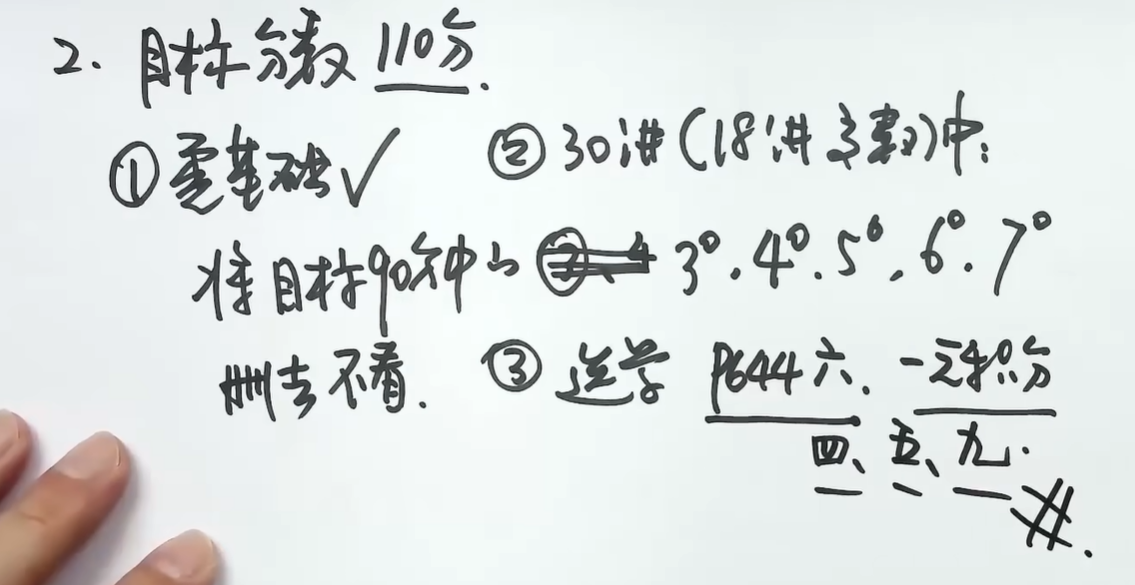 2. 目标分数 110分.
① 零基础√
② 30讲(18讲高数)中:
将目标90分中的 3°. 4°. 5°. 6°. 7°
删去不看.
③ 选学 P644 六、一元积分
四、五、九.